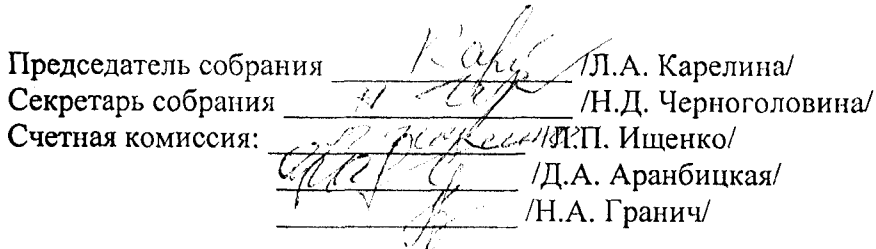 Председатель собрания /Л.А. Карелина/
Секретарь собрания /Н.Д. Черноголовина/
Счетная комиссия: Л.П. Ищенко/
/Д.А. Аранбицкая/
/Н.А. Гранич/